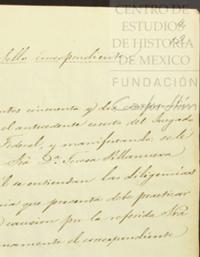 CENTRO DE
ESTUDIOS
DE HISTORIA
DE MEXICO
FUNDACIÓN
Sello correspondiente
cincuenta y
el antecedente escrito del Juzgado
Federal, y manifestando se le
Sra Dª Teresa Villanueva
se entiendan las diligencias
que presenta debe practicar
caucion por la referida
namente el correspondiente